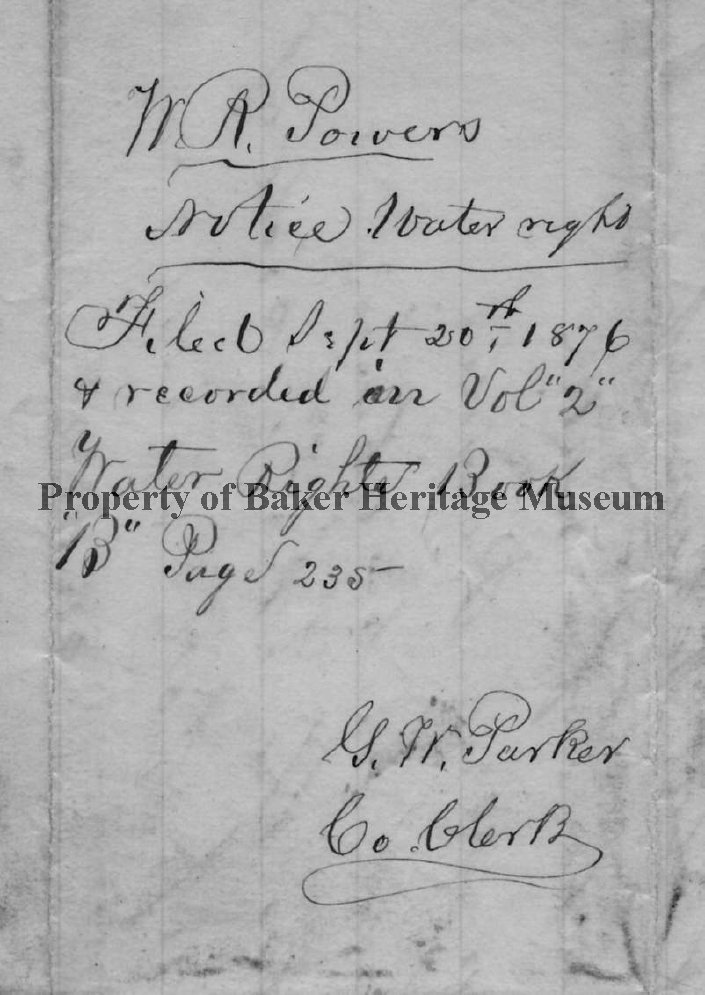 W. R. Powers
Notice Water right
Filed Sept 20th, 1876
& recorded in Vol "2"
Water Rights Book
Property of Baker Heritage Museum
"B" Page 235
G. W. Parker
Co. Clerk